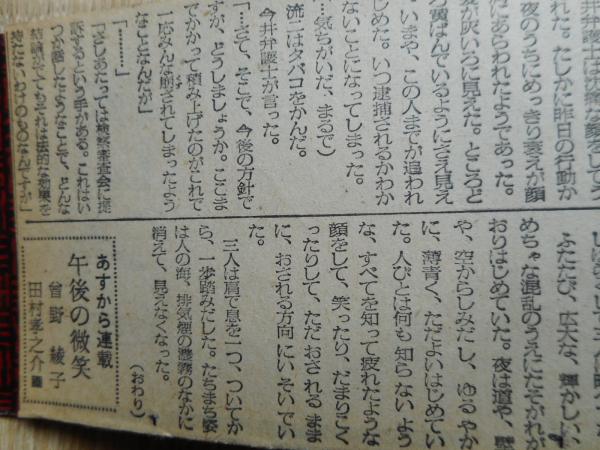 今井弁護士は沈痛な顔をしてう
れた。たしかに昨日の行動か
夜のうちにめっきり衰えが顔
にあらわれたようであった。
髪が灰いろに見えた。ところど
ろ黄ばんでいるようにさえ見え
。いまや、この人までが追われ
じめた。いつ逮捕されるかわか
ないことになってしまった。
（…気ちがいだ、まるで）
流二はタバコをかんだ。
今井弁護士が言った。
「……さて、そこで、今後の方針で
すが、どうしましょうか。ここま
でかかって積み上げたのがこれで
一応みんな崩されてしまったよう
なことなんだが」
「………」
「さしあたっては検察審査会に提
訴するという手がある。これはい
つか話したようなことで、どんな
結論がでてもそれは法的な効果を
持たないだけのものなんですが」
ふたたび、広大な、輝かしい、
めちゃな混乱のうえにたそがれが
おりはじめていた。夜は道や、壁
や、空からしみだし、ゆるやか
に、薄青く、ただよいはじめてい
た。人びとは何も知らないよう
な、すべてを知って疲れたような
顔をして、笑ったり、だまりこく
ったりして、ただおされるまま
に、おされる方向にいそいでい
た。
三人は肩で息を一つ、ついてか
ら、一歩踏みだした。たちまち姿
は人の海、排気煙の濃霧のなかに
消えて、見えなくなった。
（おわり）
あすから連載
午後の微笑
曾野 綾子
田村孝之介 画